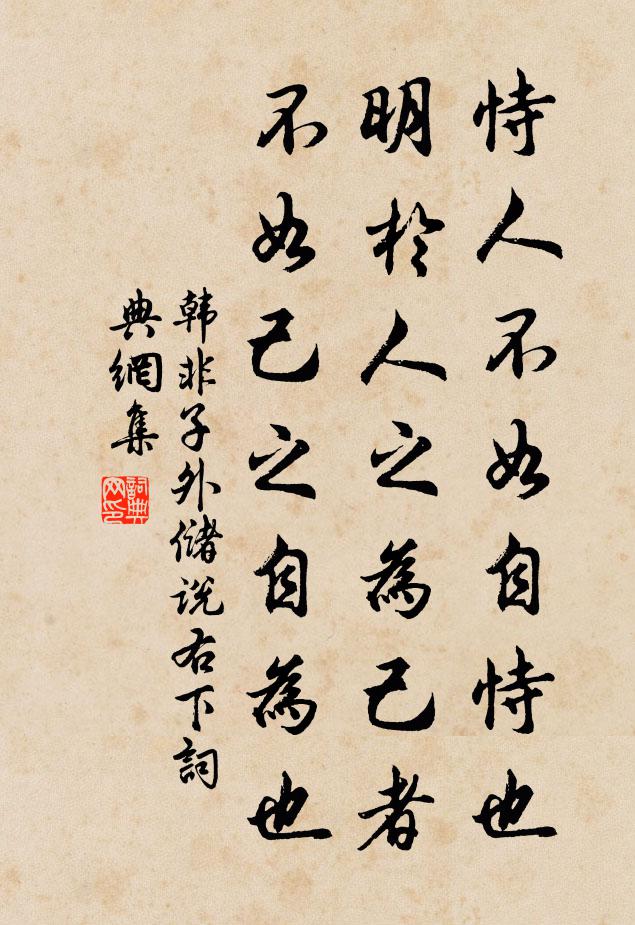 恃人不如自恃也
明於人之為己者
不如己之自為也
韩非子外儲说右下詞
典網集
詞典
网印